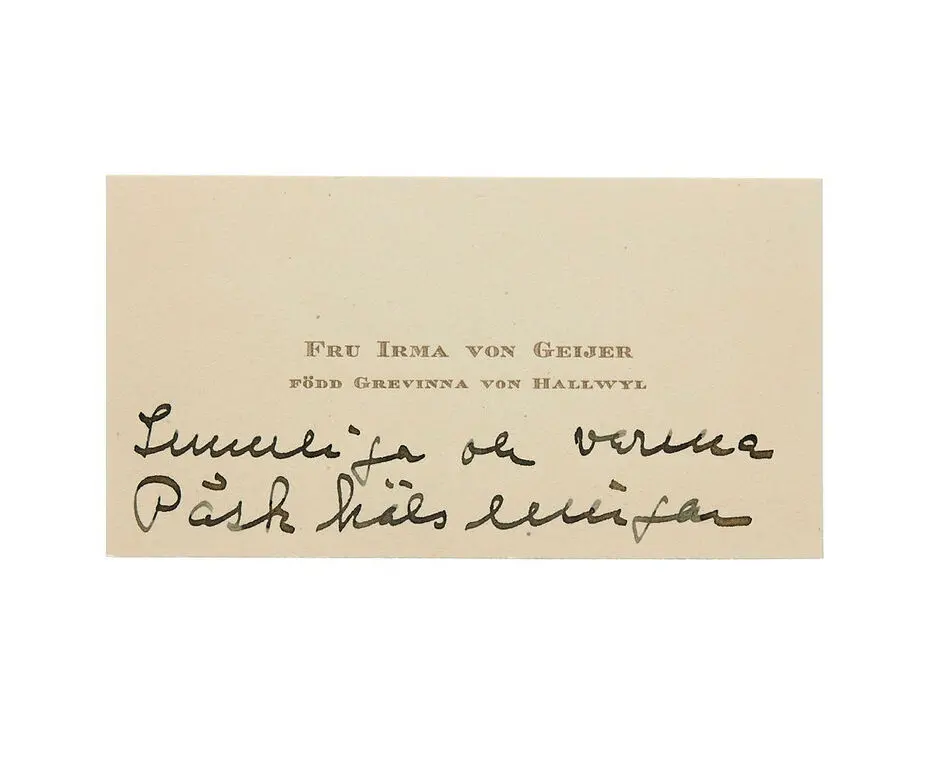 FRU IRMA VON GEIJER
FÖDD GREVINNA VON HALLWYL
Innerliga och varma
Påsk hälsningar